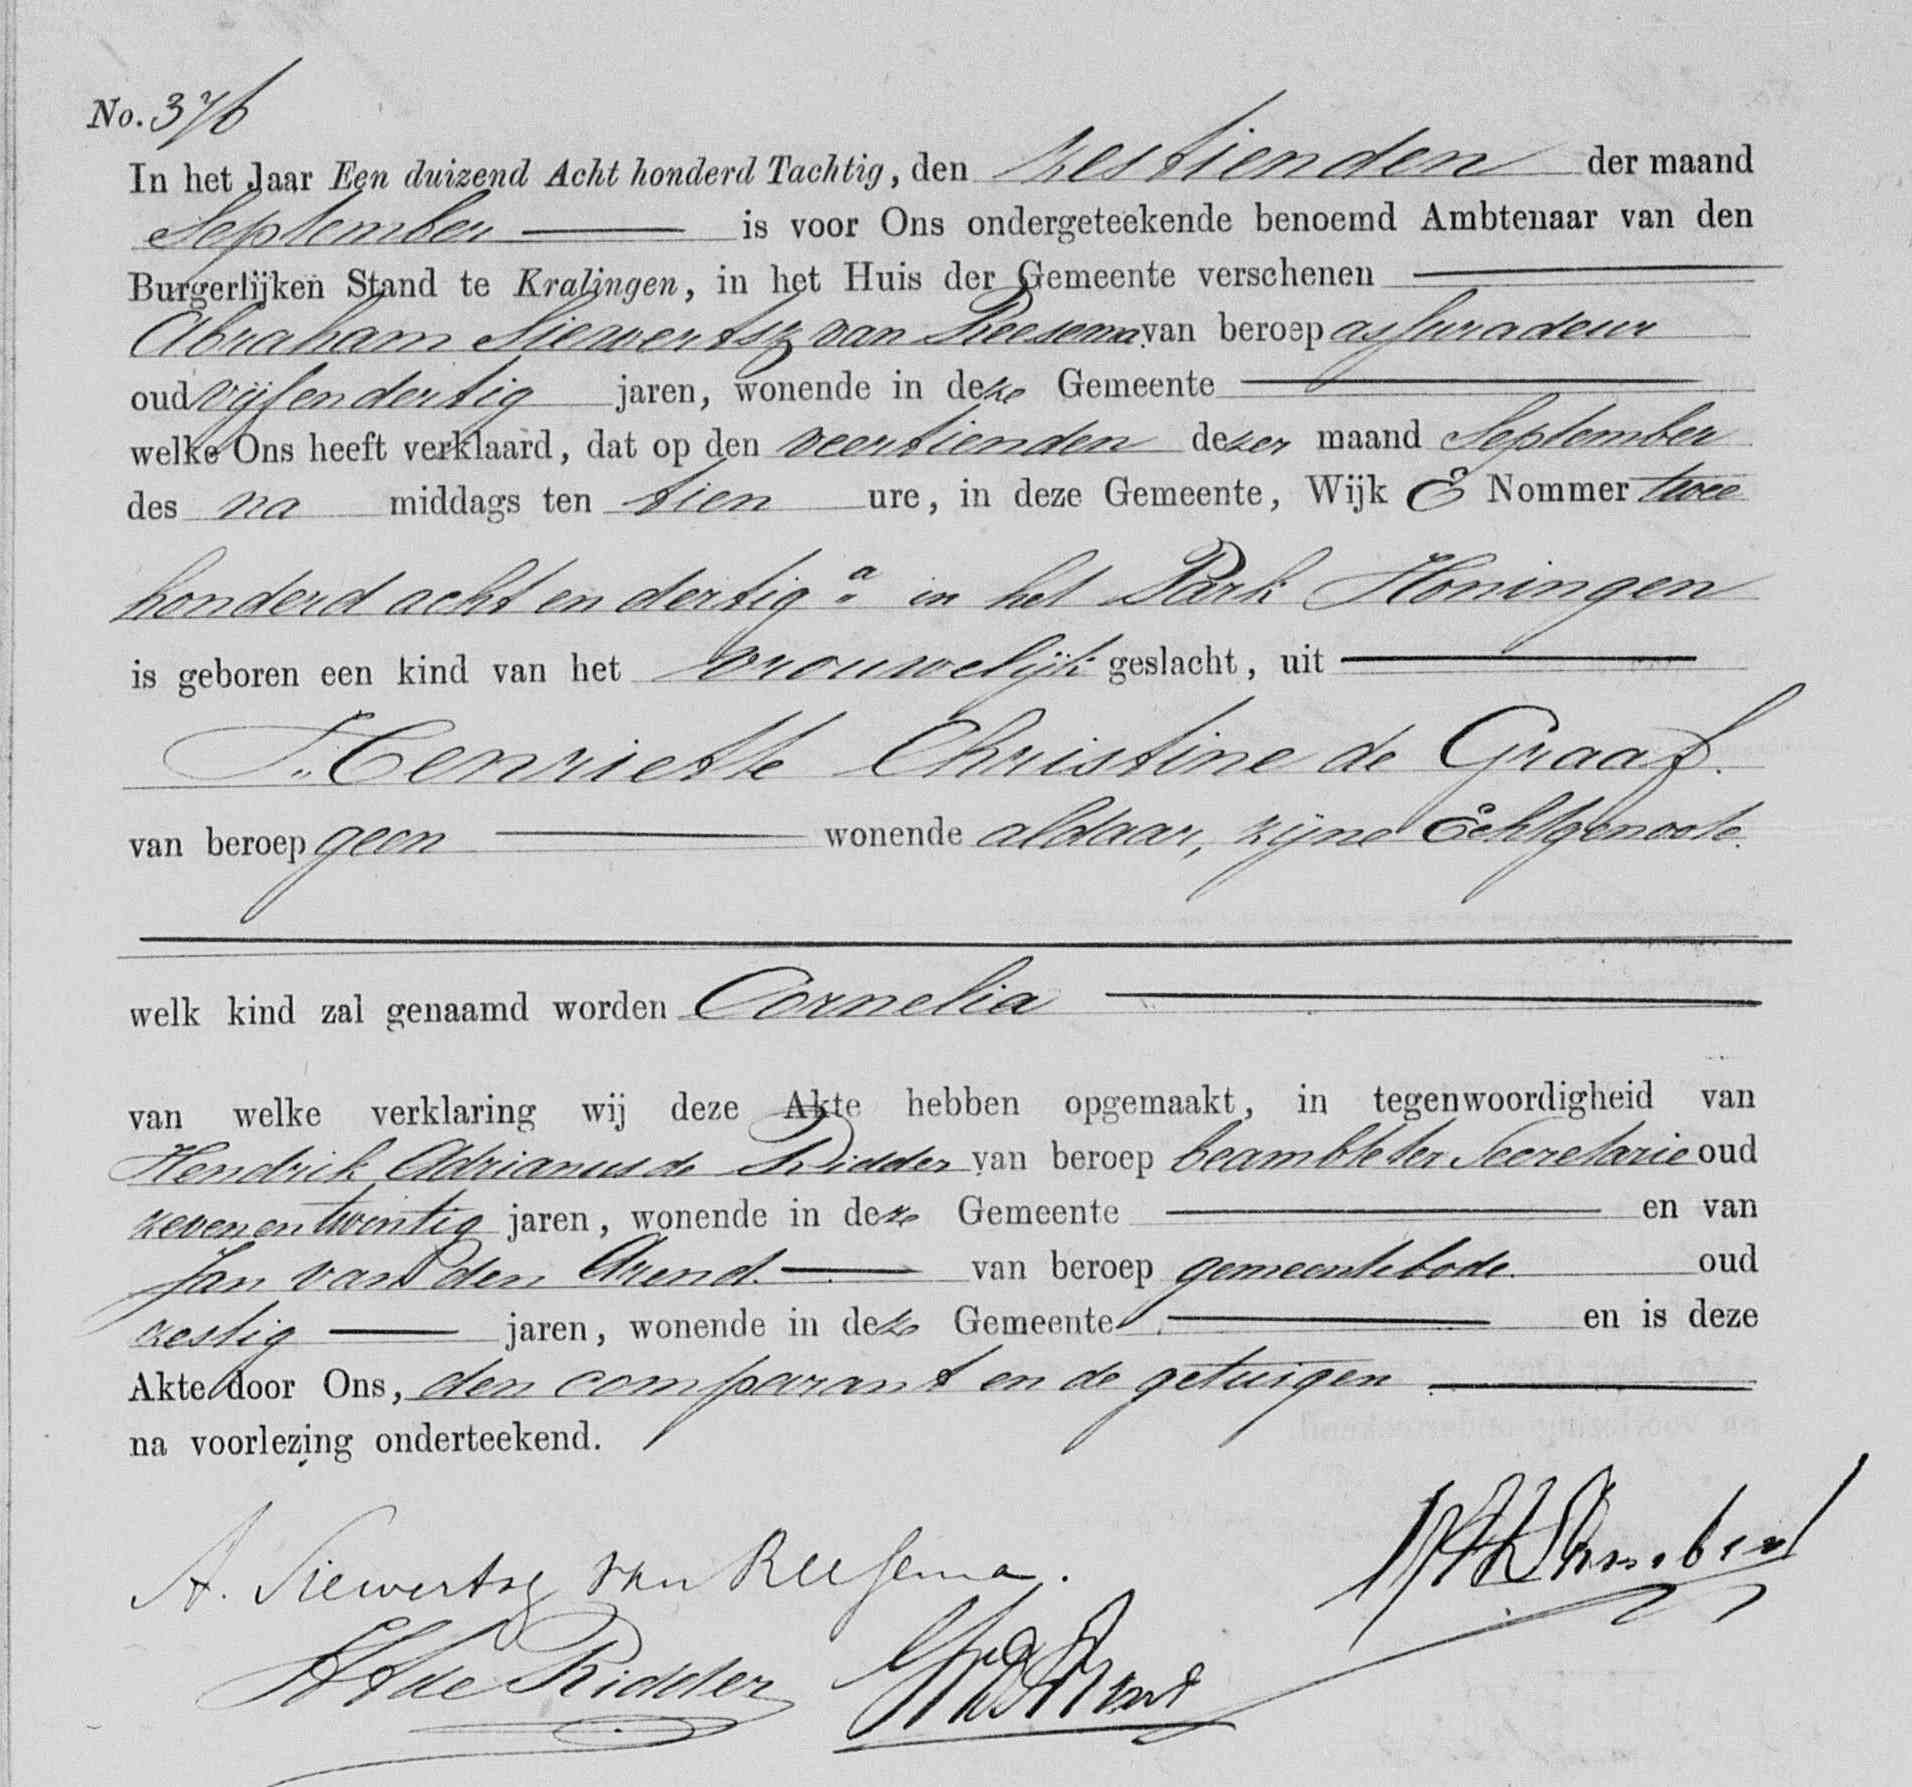 No. 376
In het Jaar Een duizend Acht honderd Tachtig, den zestienden der maand
September is voor Ons ondergeteekende benoemd Ambtenaar van den
Burgerlijken Stand te Kralingen, in het Huis der Gemeente verschenen
Abraham Siewertsz van Reesema van beroep assuradeur
oud vijfendertig jaren, wonende in deze Gemeente
welke Ons heeft verklaard, dat op den veertienden dezer maand September
des na middags ten tien ure, in deze Gemeente, Wijk E Nommer twee
honderd acht en dertig a in het Park Honingen
is geboren een kind van het vrouwelijk geslacht, uit
Henriette Christine de Graaf.
van beroep geen wonende aldaar, zijne Echtgenoote.
welk kind zal genaamd worden Cornelia
van welke verklaring wij deze Akte hebben opgemaakt, in tegenwoordigheid van
Hendrik Adrianus de Ridder van beroep beambte ter Secretarie oud
zevenentwintig jaren, wonende in deze Gemeente en van
Jan van den Arend van beroep gemeentebode oud
zestig jaren, wonende in deze Gemeente en is deze
Akte door Ons, den comparant en de getuigen
na voorlezing onderteekend.
A. Siewertsz van Reesema.
HA de Ridder